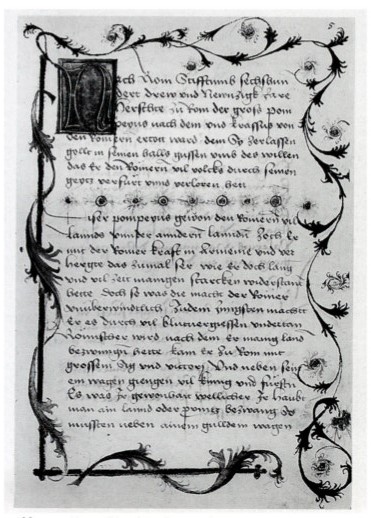 Nach Rom Stifftunnb sechshun
dert drew und Newnzigk Jare
Herschte zu Rom der gross pom
peyus nach dem und krassus von
den Römern ertott ward dem Sy zerlassen
gollt in seinen halls gussen umb des willen
das Er den Römern vil volcks durch seinen
geytz verfürt unnd verloren hett
iser pompeyus gewon den Römern vil
lannds unnder anndern lannden Zoch Er
mit der Römer krafft in Armenie und ver
hergte das zumal ser wie Er doch lang
und vil zeit manigen starcken widerstand
hette Doch so was die macht der Römer
unüberwindtlich Zudem Jüngsten machte
Er es durch vil blutuergiessen undertan
Römischer nach dem Er manig land
bezwungen hette kam Er zu Rom mit
grossem Sig und victory Und neben sein
em wagen giengen vil künig und fürsten
Es was Je gewonhait wellicher Je haubt
man ain lannd oder bezwang So
mussten neben ainem gulldem wagen